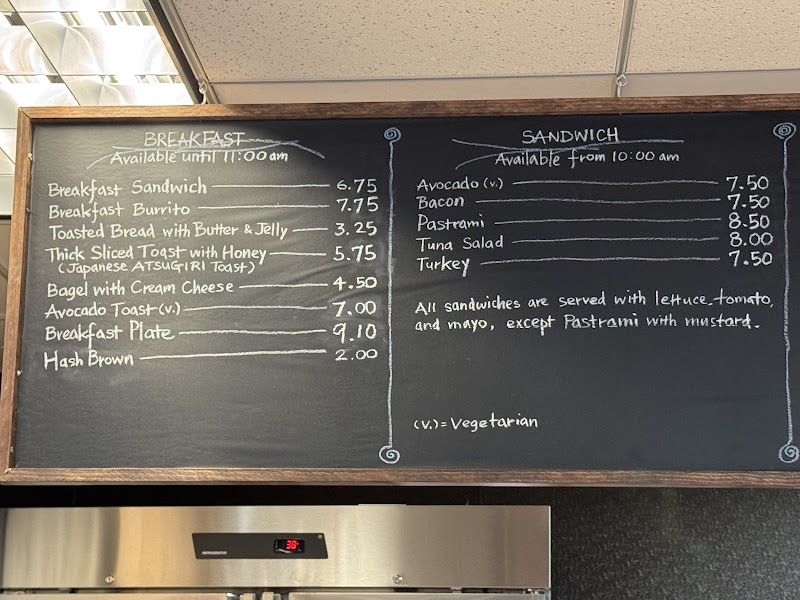 BREAKFAST
Available until 11:00 am
Breakfast Sandwich 6.75
Breakfast Burrito 7.75
Toasted Bread with Butter & Jelly 3.25
Thick Sliced Toast with Honey 5.75
(Japanese ATSUGIRI Toast)
Bagel with Cream Cheese 4.50
Avocado Toast (v.) 7.00
Breakfast Plate 9.10
Hash Brown 2.00
SANDWICH
Available from 10:00 am
Avocado (v.) 7.50
Bacon 7.50
Pastrami 8.50
Tuna Salad 8.00
Turkey 7.50
All sandwiches are served with lettuce, tomato,
and mayo, except Pastrami with mustard.
(v.) = Vegetarian